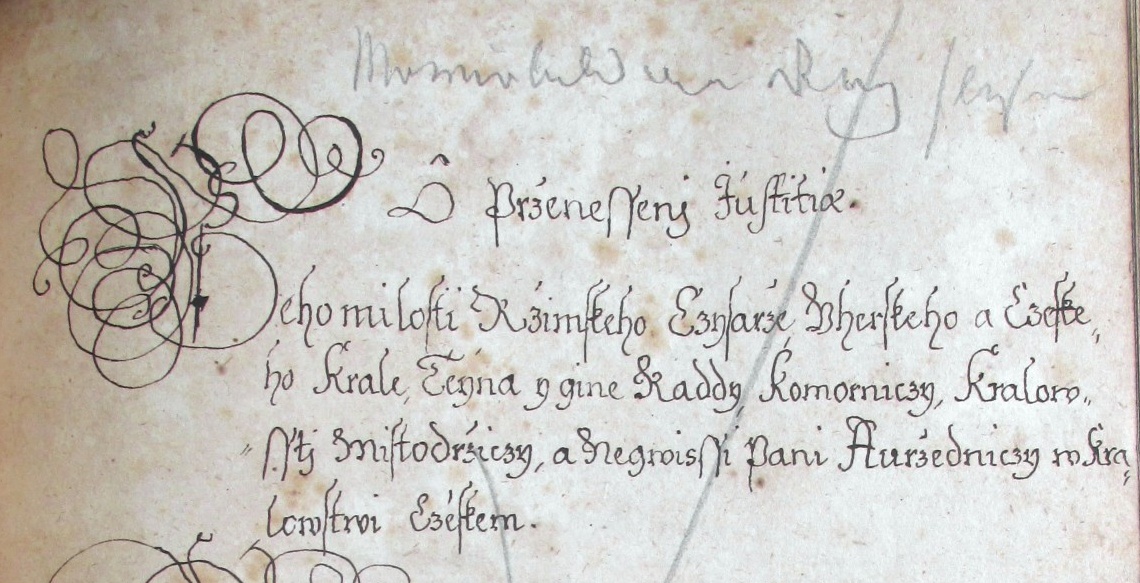 O Przenesseny Justitiæ.
Geho milosti Rzimskeho Czysarze, Vherskeho a Czeske„
ho Krale, Teyna y gine Raddy, Komorniczy, Kralow„
„sstj Mistodrżiczy, a Negwissi Pani Aurzedniczy w Kra„
lowstwi Czeskem.